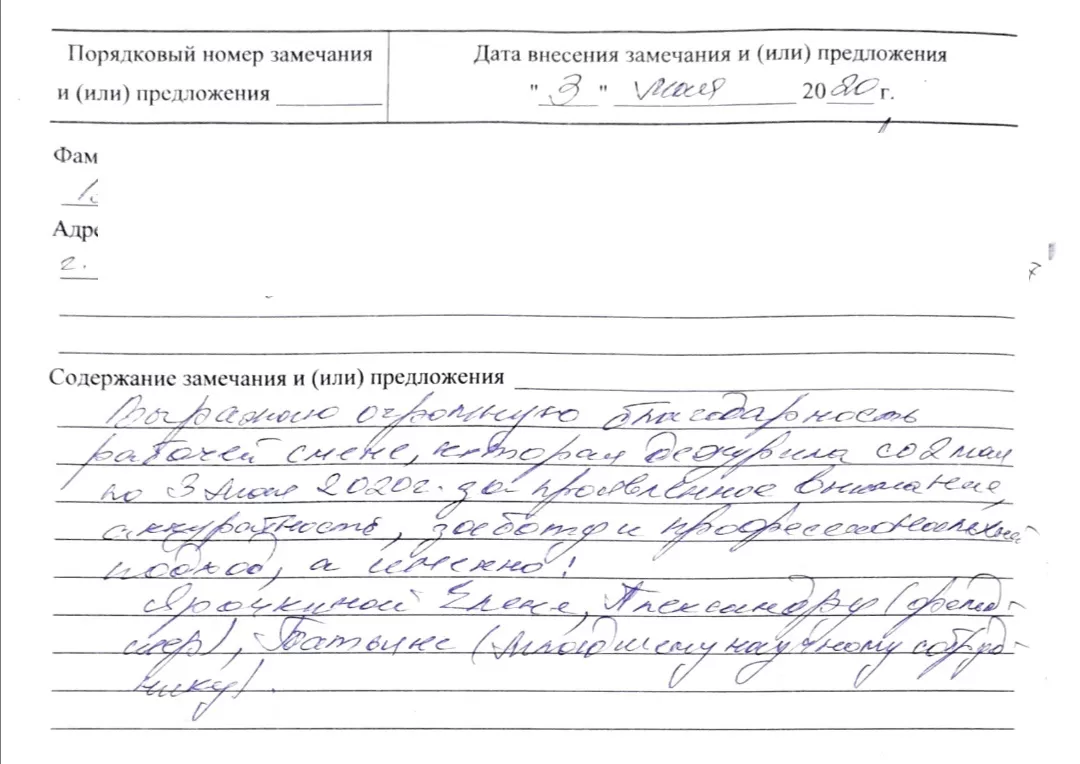 Порядковый номер замечания
и (или) предложения
Дата внесения замечания и (или) предложения
"3" мая 2020 г.
Фам
Адре
г.
Содержание замечания и (или) предложения
Выражаю огромную благодарность
рабочей смене, которая дежурила со 2 мая
по 3 мая 2020г. за проявленное внимание,
аккуратность, заботу и профессиональный
подход, а именно!
Ярочкиной Елене, Александру (фельд-
шер), Татьяне (младшему научному сотруд-
нику).